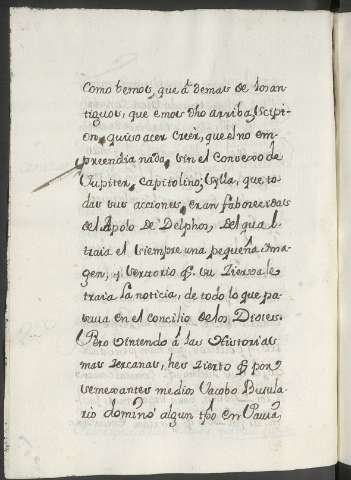 Como bemos, que â demas de los an-
tiguos, que emos dho arriba, Scipi-
on, quiso acer creèr, que èl no em-
preendia nada, sin el Consexo de
Jupiter, Capitolino; Sylla, que to-
das sus acciones, eran faborecidas
del Apolo de Delphos, del qual
traia el siempre una pequeña Ima-
gen; y Sertorio q̃ su Zierva le
traia la noticia, de todo lo que pa-
saua en el concilio de los Dioses.
Pero viniendo â las Historias
mas Zercanas, hes Zierto q̃ por
semexantes medios Jacobo Busula-
rio dominò algun tp̃o en Pauia,